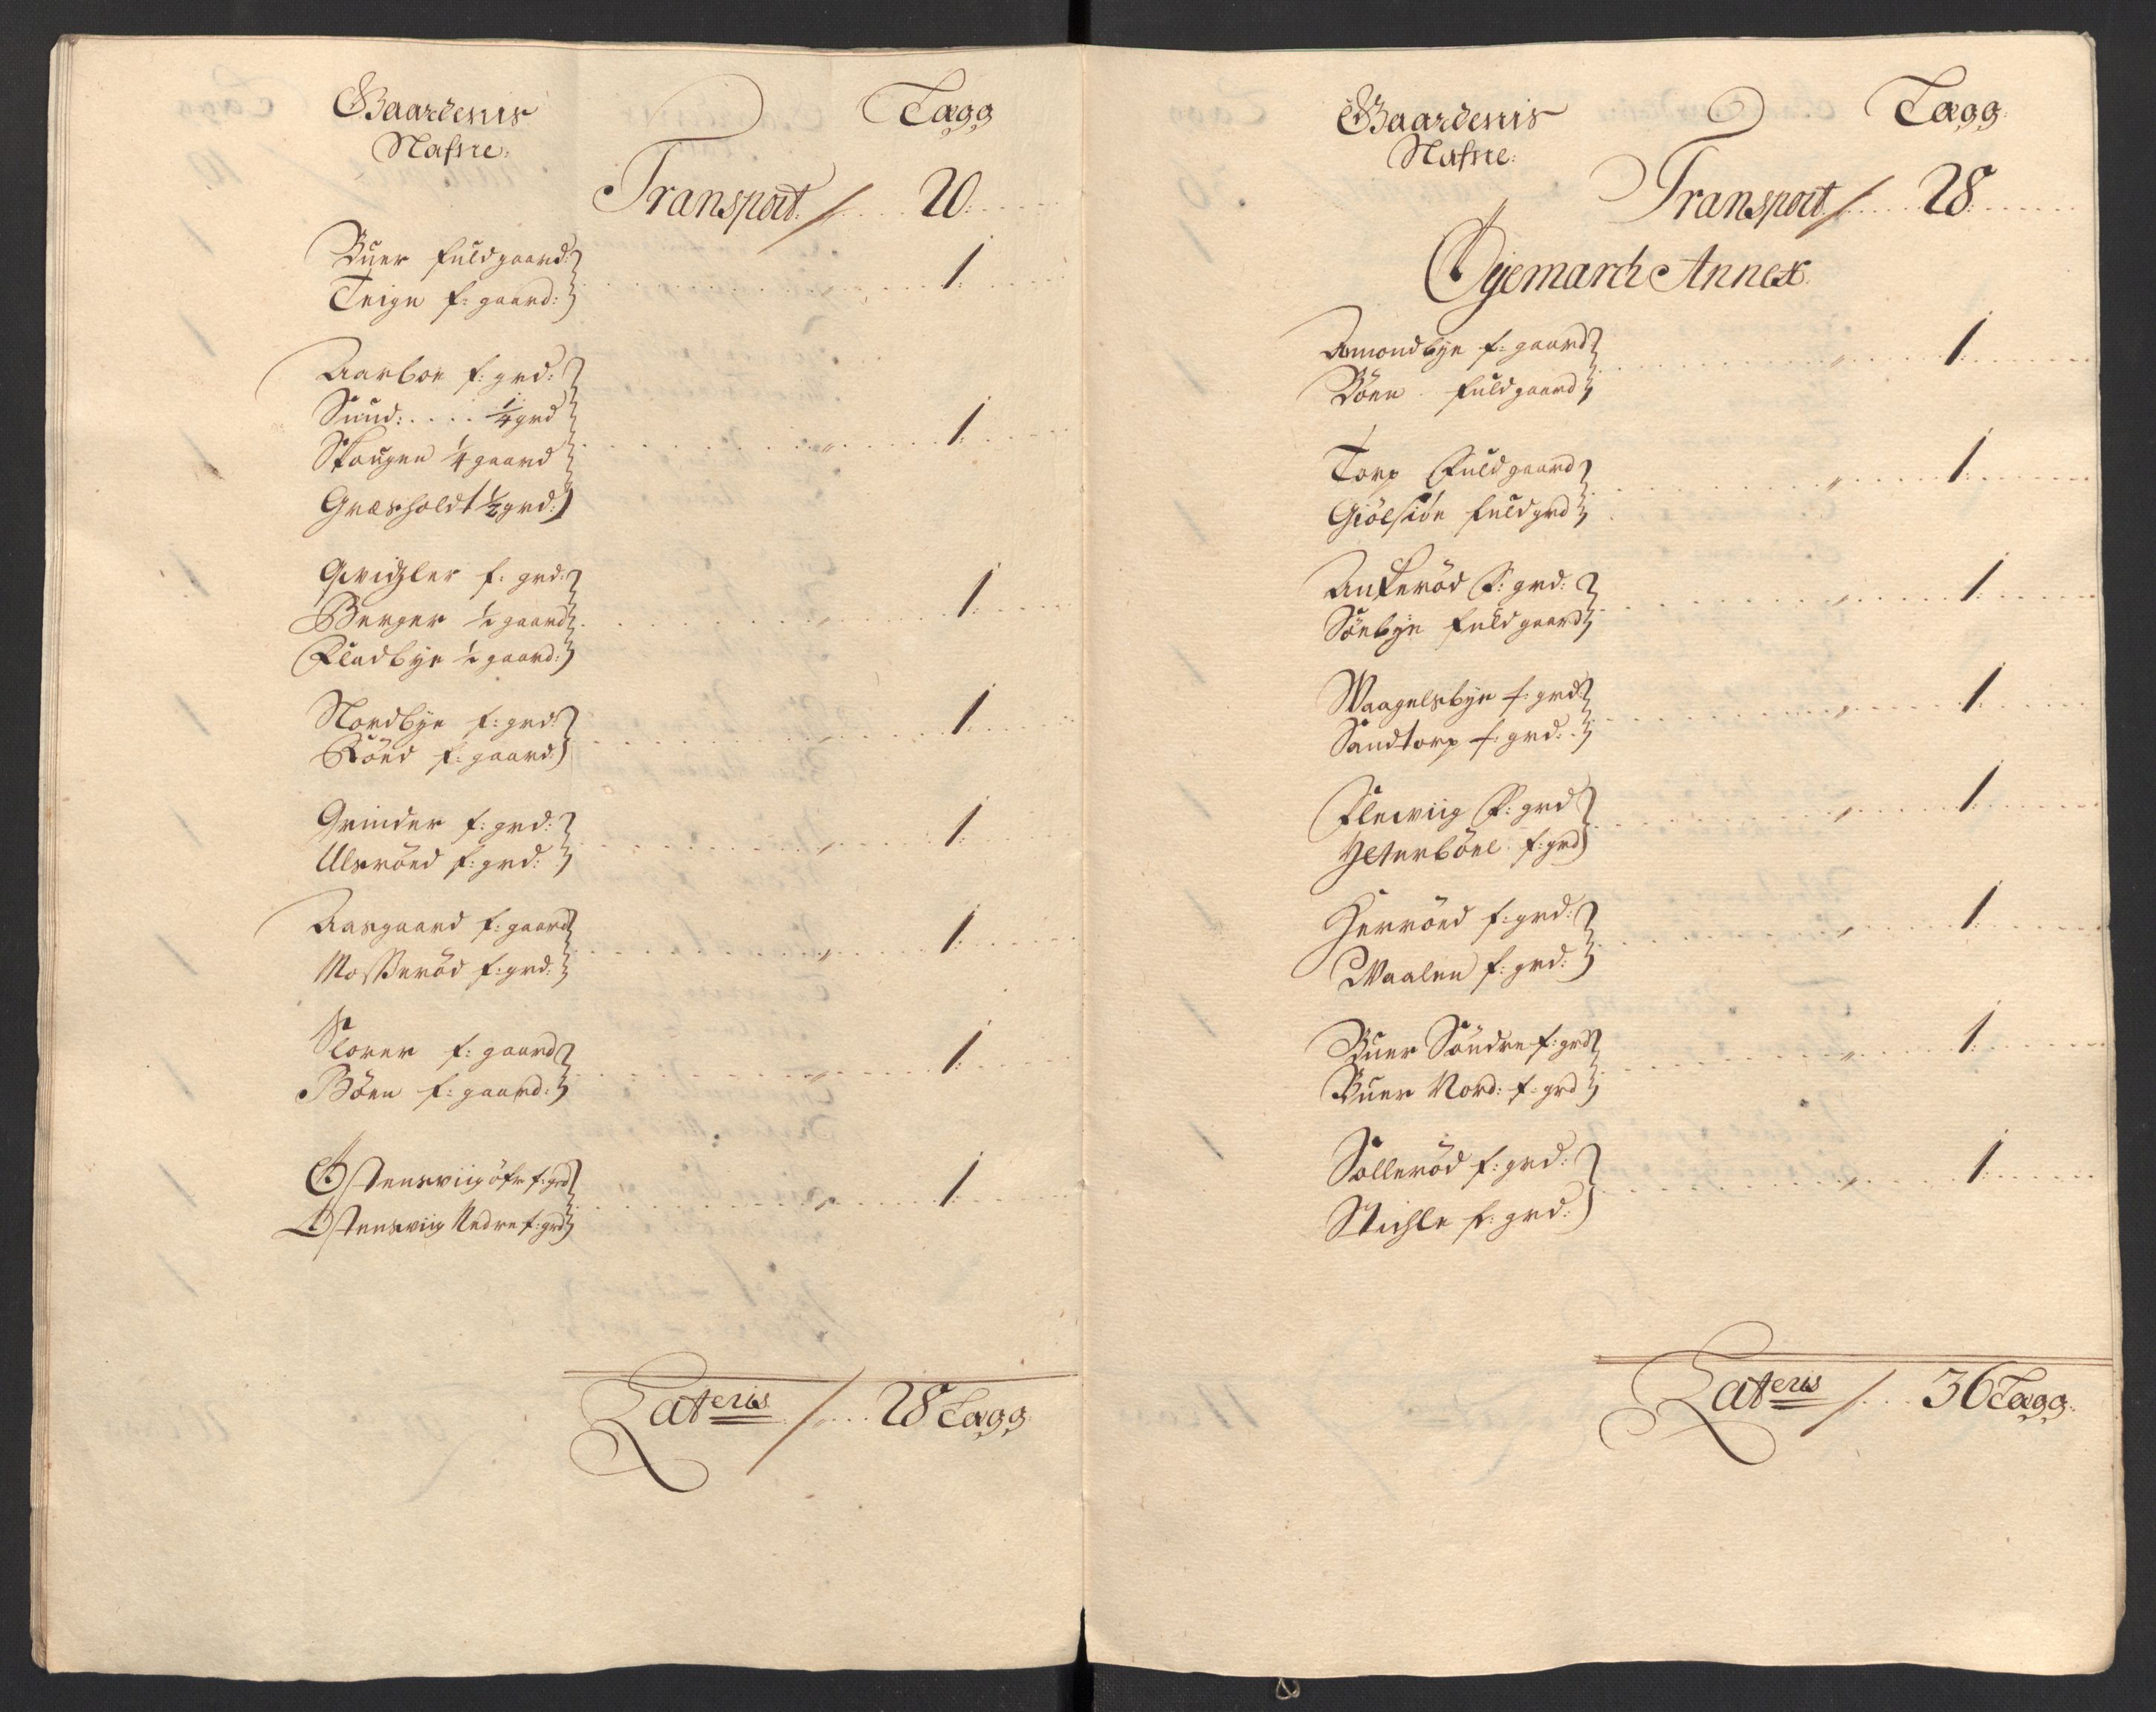 Gaardenis
Nafne:
Lægg
Transport / 20
Buer fuldgaard:
Teige f: gaard: 1
Aarboe f: grd:
Sund: 1/4 grd
Skougen 1/4 gaard
Græsholdt 1/2 grd: 1
Qvidzler f: grd:
Berger 1/2 gaard
Fladbye 1/2 gaard: 1
Nordbye f: grd:
Röed f: gaard: 1
Grinder f: grd:
Ulsröed f: grd: 1
Aasgaard f: gaard
Mosseröd f: grd: 1
Slorer f: gaard
Böen f: gaard: 1
Østensviig öfr f: grd
Østensviig Nedre f: grd 1
Lateris / 28 Lægg
Gaardenis
Nafne:
Lægg:
Transport / 28
Øyemarch Annex.
Amondbye f: gaard
Böen fuldgaard 1
Torp Fuldgaard
Giölsiöe fuldgrd 1
Ankeröd F: grd:
Sönbye fuldgaard 1
Waagelsbye f: grd:
Sandtorp f: grd: 1
Flewiig F: grd
Ylterböel f: grd 1
Herröed f: grd:
Waalen f: grd: 1
Buer Söndre f: grd
Buer Nord: f: grd 1
Solleröd f: grd:
Stichle f: grd: 1
Lateris / 36 Lægg: